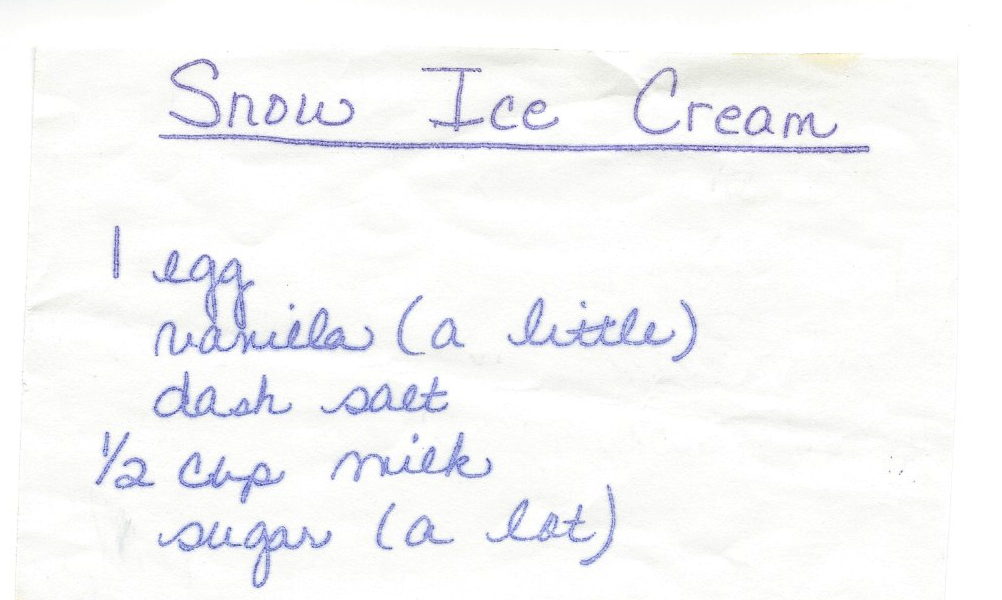 Snow Ice Cream
1 egg
vanilla (a little)
dash salt
1/2 cup milk
sugar (a lot)